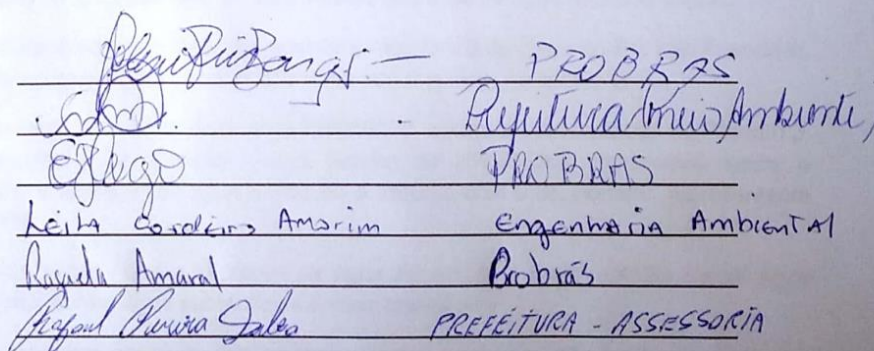 — PROBRAS
Prefeitura/meio Ambiente,
PROBRAS
Leila Cordeiro Amorim Engenharia Ambiental
Amaral Probrás
Rafael Pereira Sales PREFEITURA - ASSESSORIA